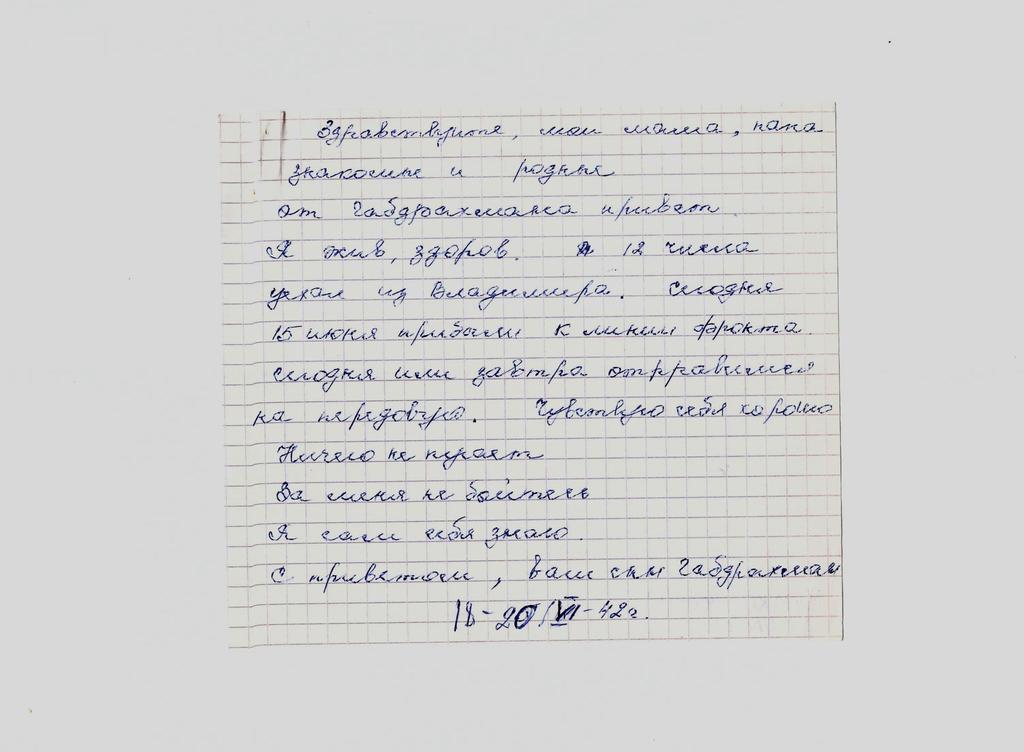 Здравствуйте, мои мама, папа
знакомые и родные
от Габдрахмана привет.
Я жив, здоров. 12 числа
уехал из Владимира. Сегодня
15 июня прибыли к линии фронта.
сегодня или завтра отправимся
на передовую. Чувствую себя хорошо
Ничего не пугает
За меня не бойтесь
Я сам себя знаю.
С приветом, ваш сын Габдрахман
18-20/VII-42г.